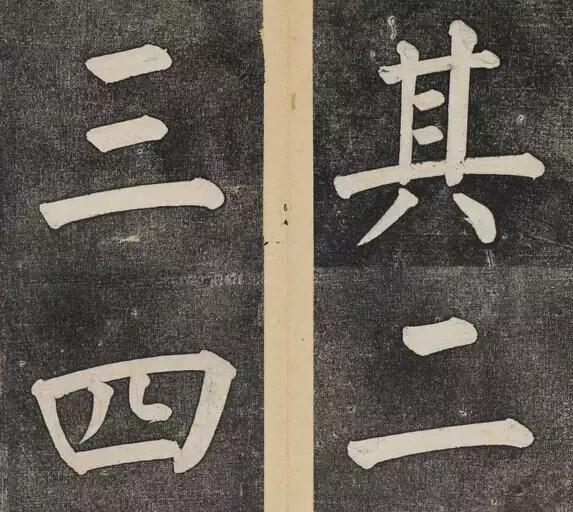 其二
三四